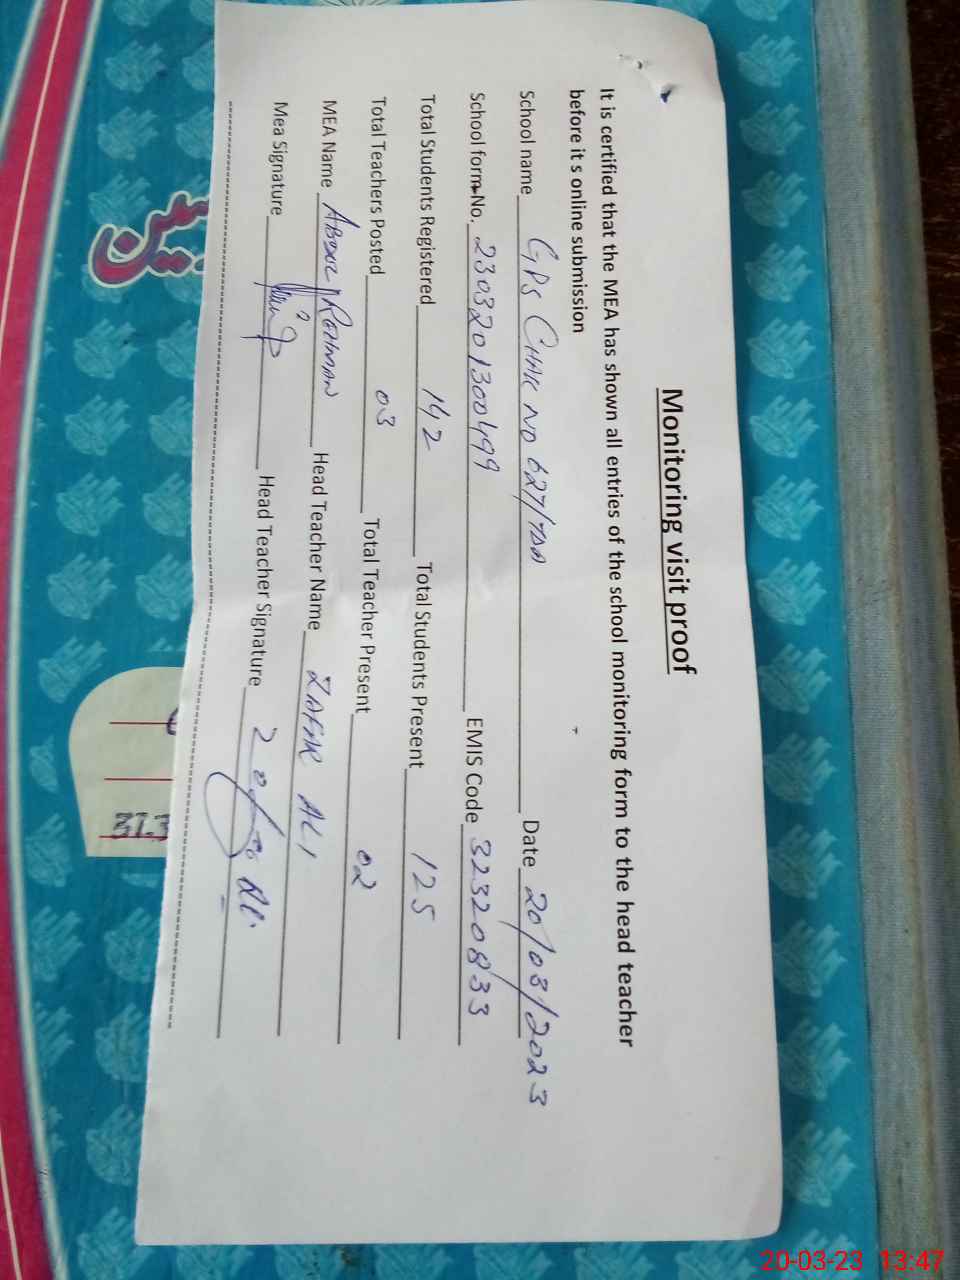 Monitoring visit proof
It is certified that the MEA has shown all entries of the school monitoring form to the head teacher
before it s online submission
School name GPS CHAK NO 627/TDA Date 20/03/2023
School form No. 2303201300499 EMIS Code 32320833
Total Students Registered 142 Total Students Present 125
Total Teachers Posted 03 Total Teacher Present 02
MEA Name ABDUL REHMAN Head Teacher Name ZAFAR ALI
Mea Signature Head Teacher Signature
20-03-23 13:47